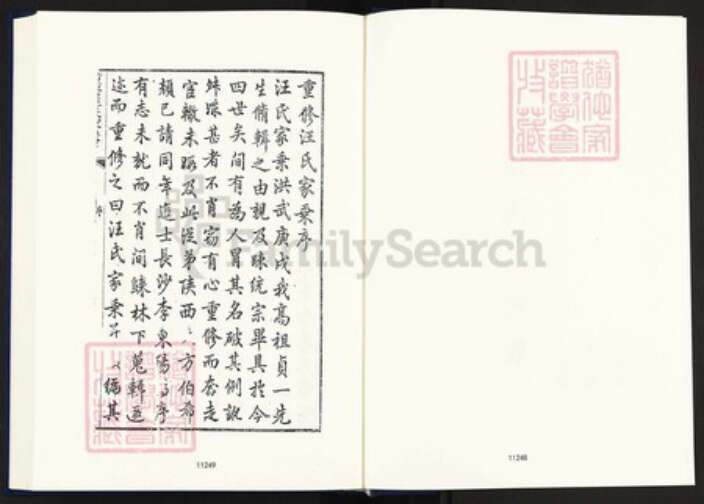 重修汪氏家乘序
汪氏家乘洪武庚戌我高祖貞一先
生脩輯之由親及疎統宗畢具於今
四世矣间有為人冒其名破其例訛
舛謬甚者不肖窃有心重修而奔走
宦轍未暇及此從弟陕西 方伯希
顏已請同年進士長沙李東陽為序
有志未就而不肖间歸林下蒐輯
述而重修之曰汪氏家乘 其
猶他家譜學會收藏
猶他家譜學會收藏
FamilySearch
11249
11248